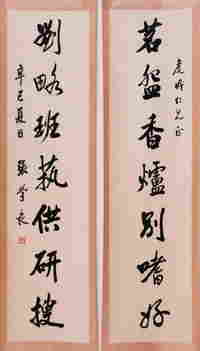 仁兄正
茗盌香爐別嗜好
劉略班蓺供研搜
辛巳夏日 張學良